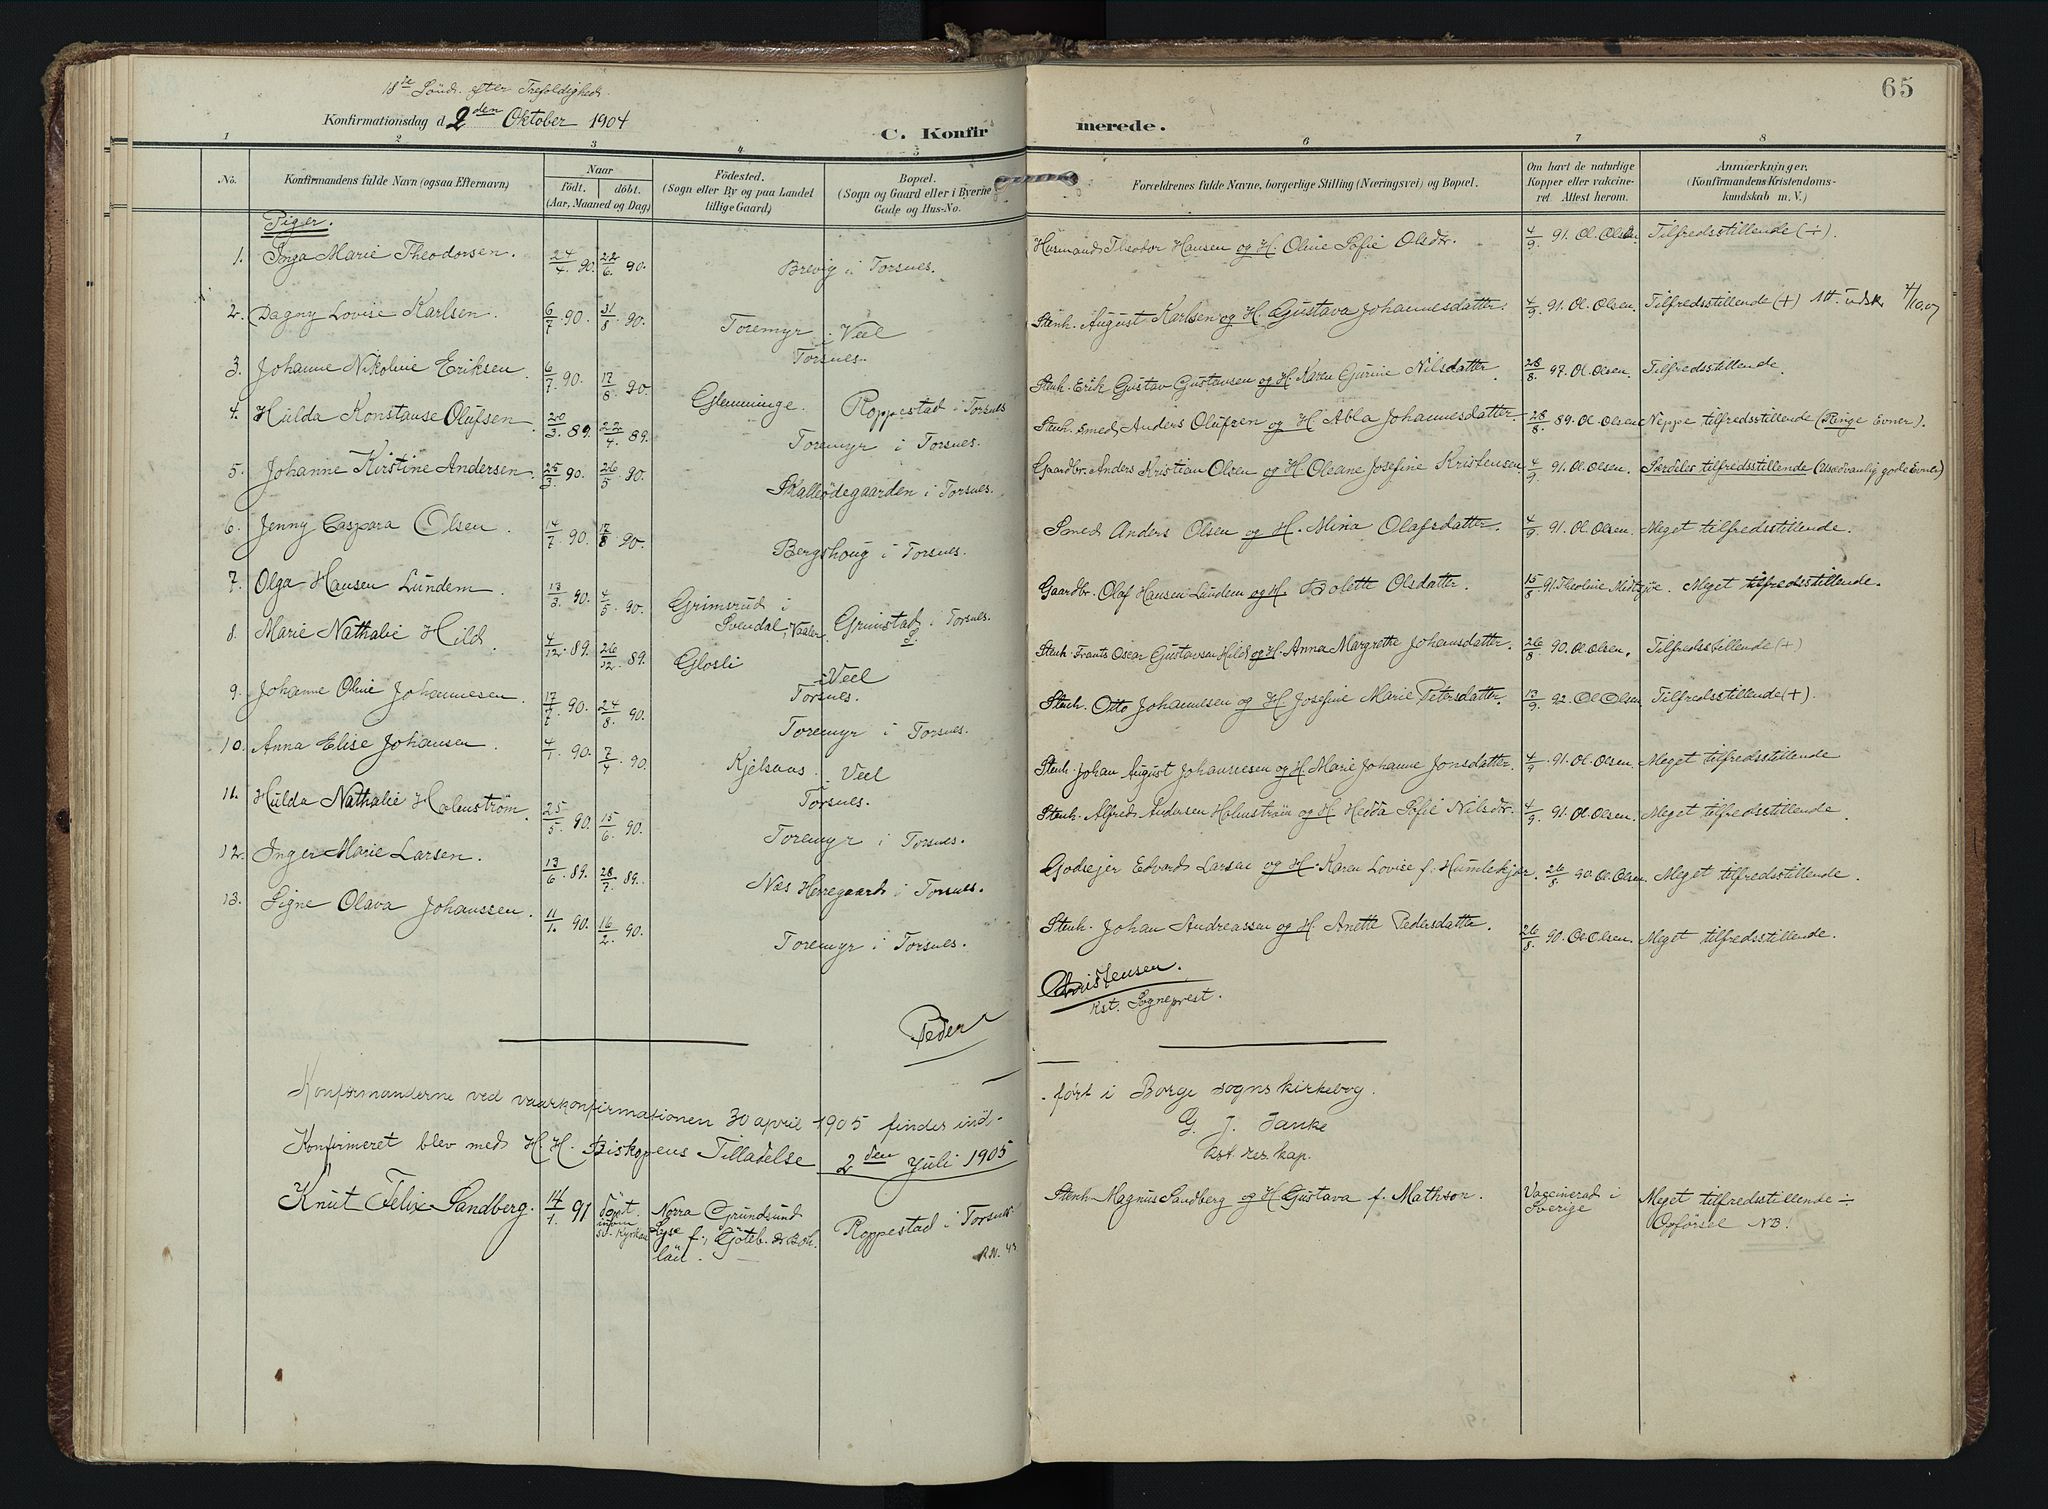 65
18de Sönd. efter Trefoldighed.
Konfirmationsdag d. 2den Oktober 1904
C. Konfirmerede.
1 2 3 4 5 6 7 8
No.
Konfirmandens fulde Navn (ogsaa Efternavn)
Naar
födt. döbt.
(Aar, Maaned og Dag)
Födested.
(Sogn eller By og paa Landet
tillige Gaard)
Bopæl.
(Sogn og Gaard eller i Byerne
Gade og Hus-No.
Forældrenes fulde Navne, borgerlige Stilling (Næringsvei) og Bopæl.
Om havt de naturlige
Kopper eller vakcine-
ret. Attest herom.
Anmærkninger.
(Konfirmandens Kristendoms-
kundskab m. V.)
Piger.
1. Inga Marie Theodorsen. 24/4 90. 22/6 90. Brevig i Torsnes. Husmand Theodor Hansen og H. Oline Sofie Olsdtr. 4/9 91. Ol. Olsen. Tilfredsstillende (÷)
2. Dagny Lovise Karlsen. 6/7 90. 31/8 90. Toremyr i Torsnes. Stenh. August Karlsen og H. Gustava Johannesdatter. 4/9 91. Ol. Olsen. Tilfredsstillende (+) Att. udsk 4/10.07
3. Johanne Nikoline Eriksen. 6/7 90. 17/8 90. Veel Torsnes. Stenh. Erik Gustav Gustavsen og H. Karen Gurine Nilsdatter. 28/8 97. Ol. Olsen. Tilfredsstillende.
4. Hulda Konstanse Olufsen. 20/3 89. 22/4 89. Glemminge. Roppestad i Torsnes Stenh. smed Anders Olufsen og H. Abla Johannesdatter. 28/8 89. Ol. Olsen Neppe tilfredsstillende (Ringe Evner).
Toremyr i Torsnes.
5. Johanne Kirstine Andersen. 25/3 90. 26/5 90. Skalleödegaarden i Torsnes. Gaardbr. Anders Kristian Olsen og H. Oleane Josefine Kristensen 4/9 91. Ol. Olsen. Særdeles tilfredsstillende (Usædvanlig gode Evner)
6. Jenny Caspara Olsen. 14/7 90. 17/8 90. Bergshoug i Torsnes. Smed Anders Olsen og H. Mina Olafsdatter. 4/9 91. Ol. Olsen. Meget tilfredsstillende.
7. Olga Hansen Lundem. 13/3 90. 4/5 90. Grimsrud i Svendal, Vaaler Grimstad i Torsnes. Gaardbr. Olaf Hansen Lundem og H. Bolette Olsdatter. 15/8 91 Theoline Meget tilfredsstillende.
8. Marie Nathalie Hild. 4/12 89. 26/12 89. Glosli Veel Torsnes. Stenh. Frants Oscar Gustavsen Hild og H. Anna Margrethe Johansdatter. 26/8 90. Ol. Olsen. Tilfredsstillende (+)
9. Johanne Oline Johannesen. 17/7 90. 24/8 90. Toremyr i Torsnes. Stenh. Otto Johannesen og H. Josefine Marie Petersdatter. 13/9 92. Ol Olsen Tilfredsstillende (+)
10. Anna Elise Johansen. 4/1 90. 7/4 90. Kjelsaas. Veel Torsnes. Stenh. Johan August Johannesen og H. Marie Johanne Jonsdatter. 4/9 91. Ol. Olsen. Meget tilfredsstillende
11. Hulda Nathalie Holmström. 25/5 90. 15/6 90. Toremyr i Torsnes. Stenh. Alfred Andersen Holmström og H. Hedda Sofie Nilsdtr. 4/9 91. Ol. Olsen. Meget tilfredsstillende.
12. Inger Marie Larsen. 13/6 89. 28/7 89. Næs Herregaard i Torsnes. Godsejer Edvard Larsen og H. Karen Lovise f. Humlekjær. 26/8 90. Ol. Olsen. Meget tilfredsstillende.
13. Signe Olava Johanssen. 11/1 90. 16/2 90. Toremyr i Torsnes. Stenh. Johan Andreassen og H. Anette Pedersdatter. 26/8 90. Ol. Olsen. Meget tilfredsstillende.
Peder Christensen.
kst. Sogneprest.
Konfirmanderne ved vaarkonfirmationen 30 april 1905 findes ind-
-ført i Borge sogns kirkebog.
G. J. Janke
kst. res. kap.
Konfirmeret blev med H. H. Biskopens Tilladelse 2den Juli 1905
Knut Felix Sandberg. 14/1 91 döpt inom sv. Kyrkan Norra Grundsund Lyse f., Göteb. & Boh. län. Roppestad i Torsnes Stenh. Magnus Sandberg og H. Gustava f. Mathson. Vaccinerad i Sverige Meget tilfredsstillende ÷
Opförsel NB!
R.N. 43